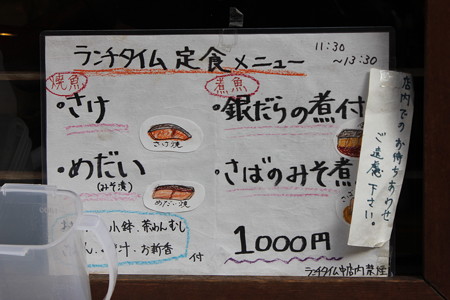 ランチタイム 定食 メニュー
11:30
～13:30
焼魚
・さけ
さけ焼
・めだい
(みそ漬)
めだい焼
小鉢、茶わんむし
汁・お新香
付
煮魚
・銀だらの煮付
・さばのみそ煮
1000円
ランチタイム中店内禁煙
店内でのお待ちあわせ
ご遠慮
下さい。